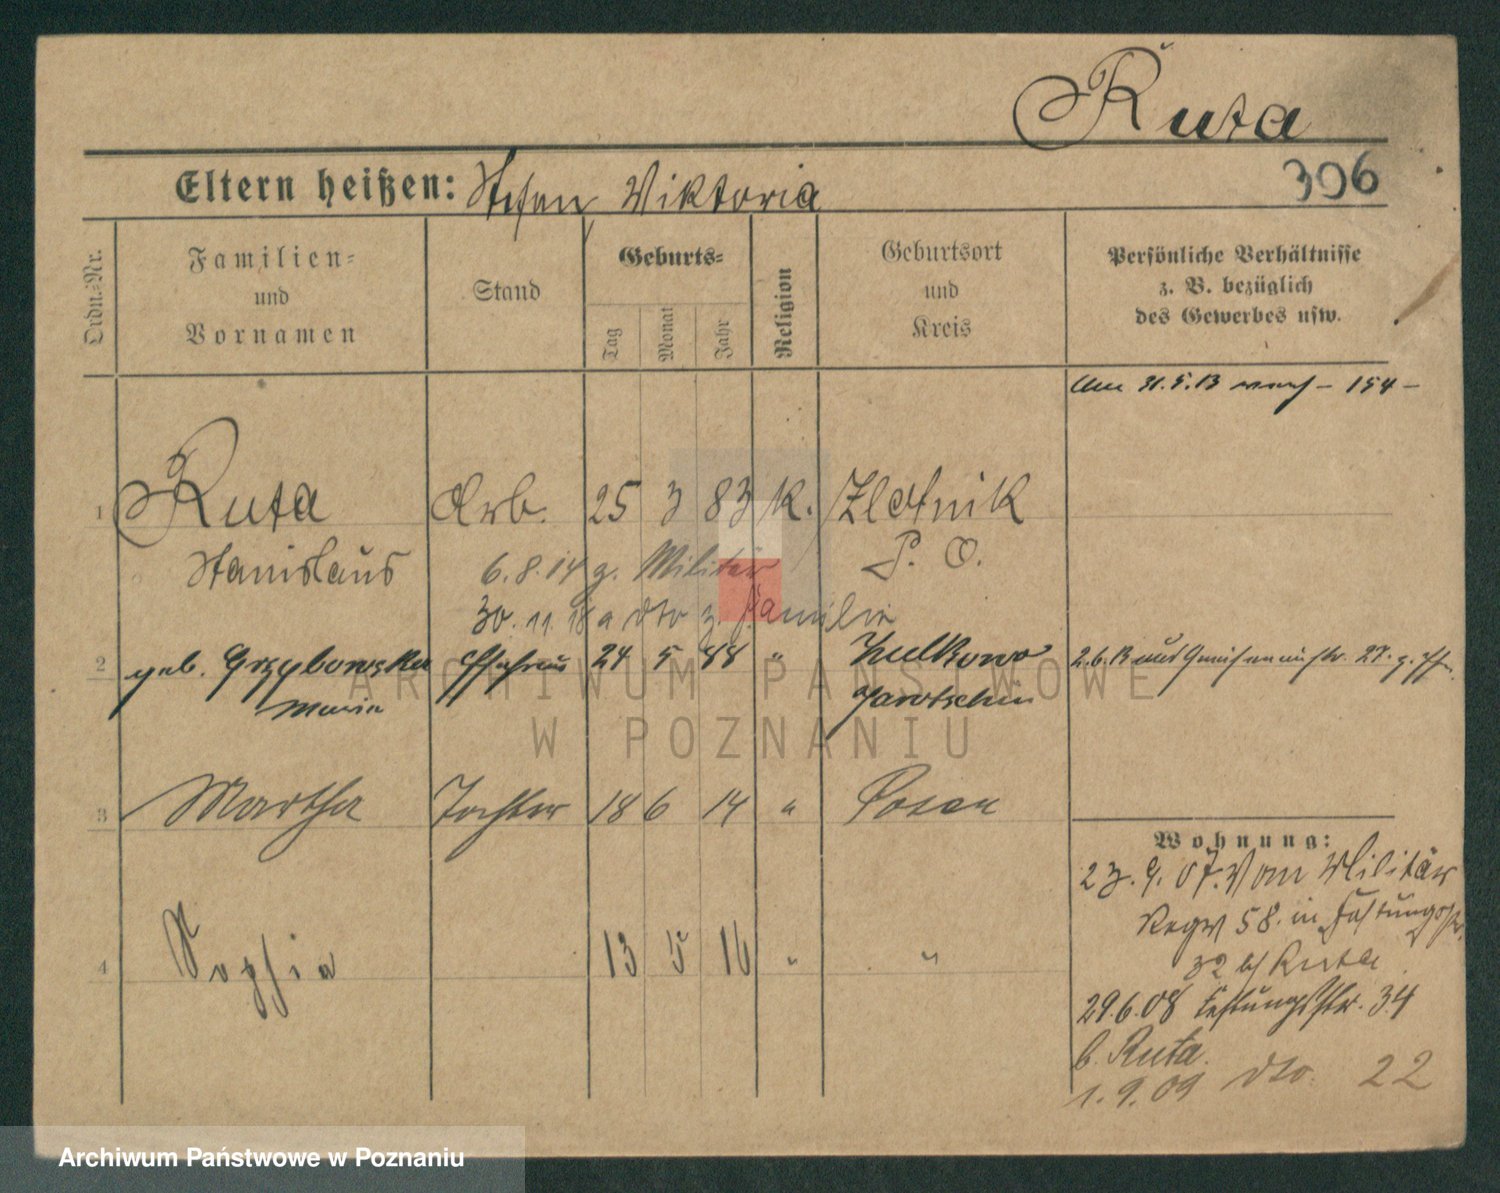 Ruta
396
Eltern heißen: Stefan Viktoria
Ordn.-Nr.
Familien-
und
Vornamen
Stand
Geburts-
Tag
Monat
Jahr
Religion
Geburtsort
und
Kreis
Persönliche Verhältnisse
z. B. bezüglich
des Gewerbes usw.
Am 31.5.13 nach – 154 –
1 Ruta Arb. 25 3 83 K. Zlotnik
Stanislaus P. O.
6.8.14 z. Militär
30.11.18 a dto z. Familie
2 geb. Grzybowska Ehefrau 24 5 88 " Zulkowo
Maria Jarotschin
2.6.13 aus Gneisenaustr. 27. z.
3 Martha Tochter 18 6 14 " Posen
4 Sophia 13 5 16 " "
Wohnung:
23.9.07. Vom Militär
Regt 58. in Festungsstr.
32 b/ Ruta
29.6.08 Festungsstr. 34
b. Ruta.
1.9.09 dto. 22
ARCHIWUM PAŃSTWOWE
W POZNANIU
Archiwum Państwowe w Poznaniu